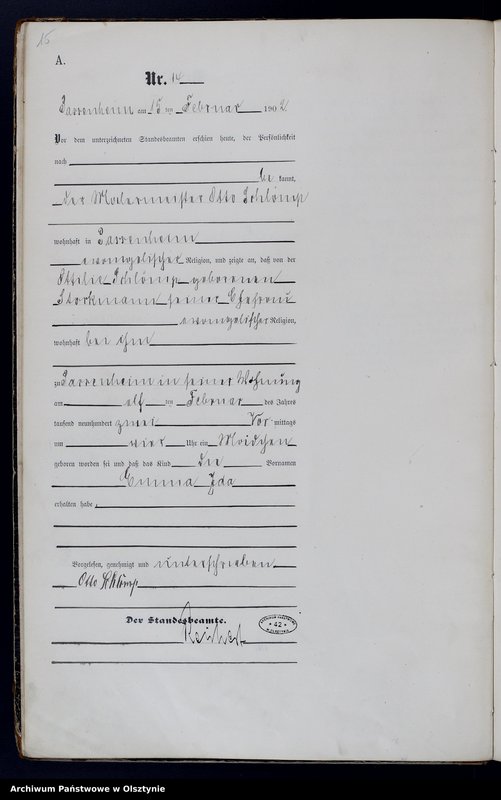 15
A.
Nr. 14
Passenheim am 15 ten Februar 1902
Vor dem unterzeichneten Standesbeamten erschien heute, der Persönlichkeit
nach
be kannt,
der Malermeister Otto Schlömp
wohnhaft in Passenheim
evangelischer Religion, und zeigte an, daß von der
Ottilie Schlömp geborenen
Storkmann seiner Ehefrau
evangelischer Religion,
wohnhaft bei ihm
zu Passenheim in seiner Wohnung
am elf ten Februar des Jahres
tausend neunhundert zwei Vor mittags
um vier Uhr ein Mädchen
geboren worden sei und daß das Kind die Vornamen
Emma Ida
erhalten habe.
Vorgelesen, genehmigt und unterschrieben
Otto Schlömp
Der Standesbeamte.
42
Archiwum Państwowe w Olsztynie